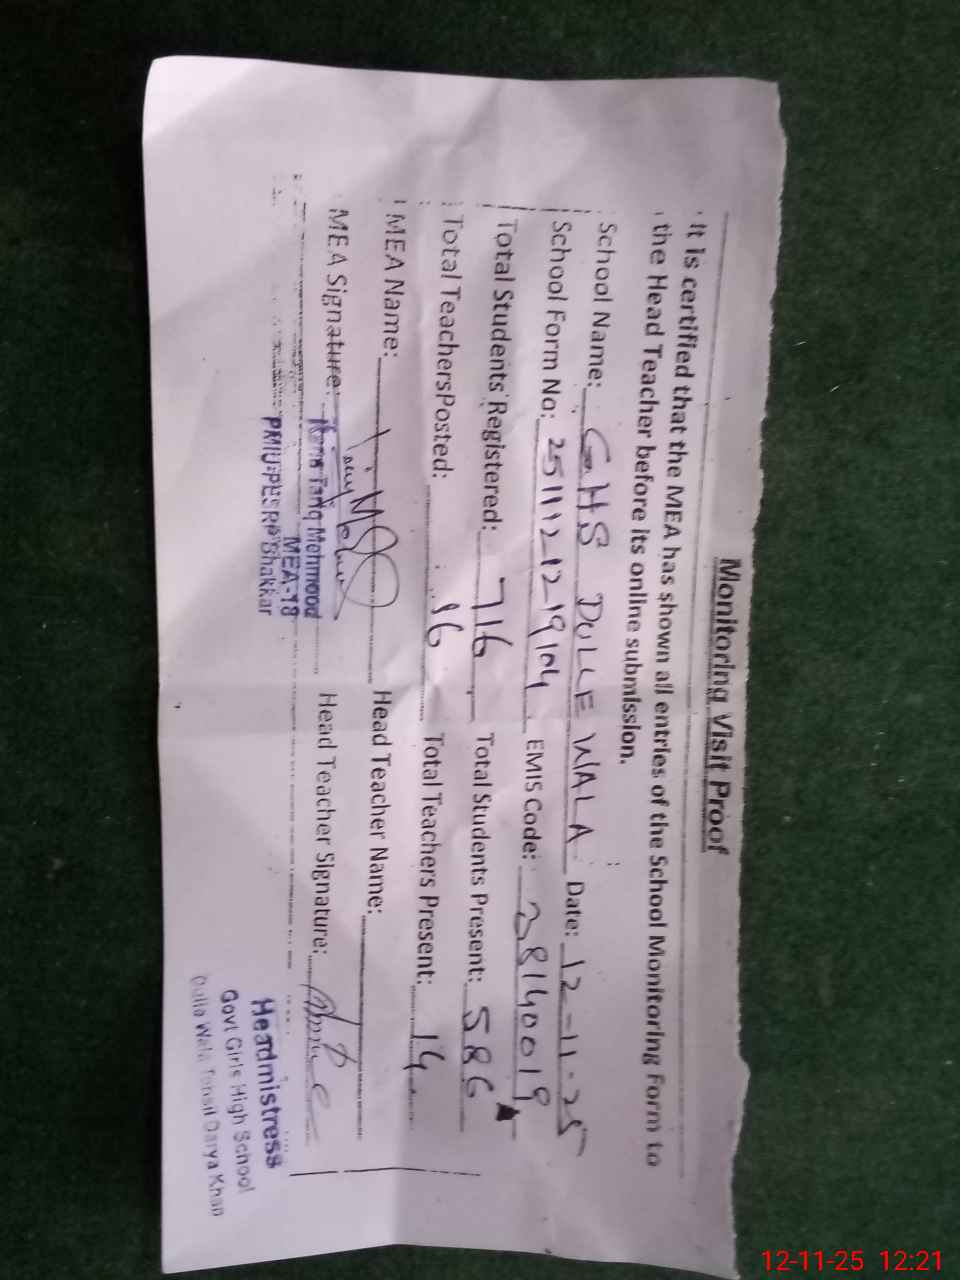 Monitoring Visit Proof
It is certified that the MEA has shown all entries of the School Monitoring Form to
the Head Teacher before its online submission.
School Name: GHS DULLE WALA Date: 12-11-25
School Form No: 2511121219104 EMIS Code: 38140019
Total Students Registered: 716 Total Students Present: 586
Total TeachersPosted: 16 Total Teachers Present: 14
MEA Name: Head Teacher Name:
MEA Signature: Head Teacher Signature:
Rana Tariq Mehmood
MEA-18
PMIU-PESRP Bhakkar
Headmistress
Govt Girls High School
Dulle Wala Tehsil Darya Khan
12-11-25 12:21